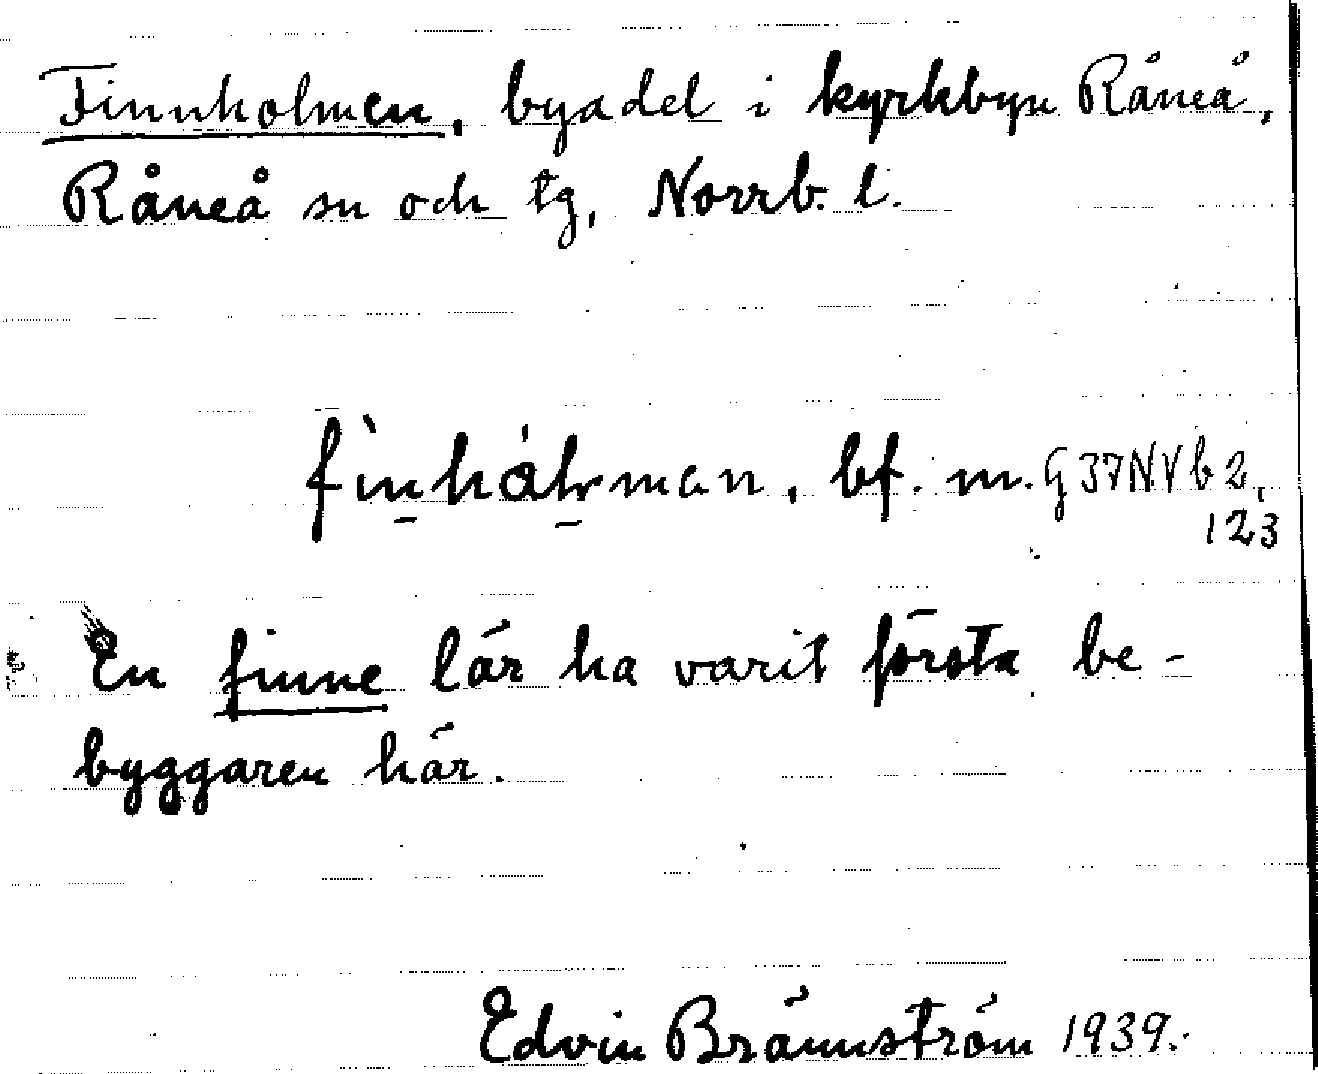 Finnholmen, byadel i kyrkbyn Råneå,
Råneå sn och tg, Norrb. l.
bf. m. G37NVb2,
123
En finne lär ha varit första be-
byggaren här.
Edvin Brännström 1939.